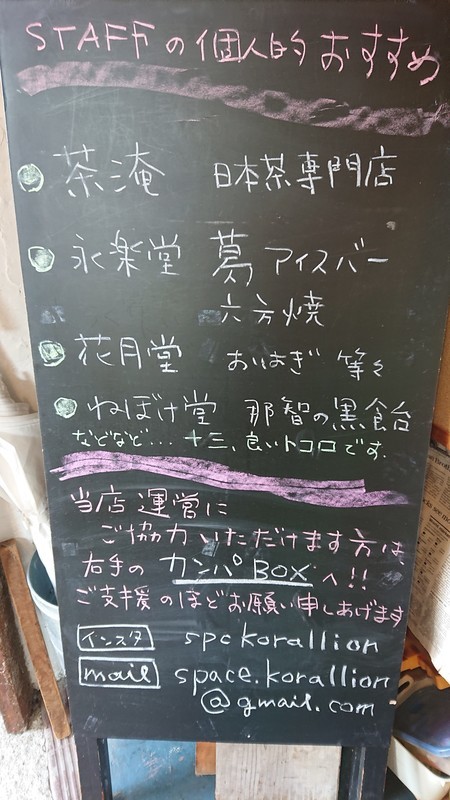 STAFFの個人的おすすめ
茶淹 日本茶専門店
永楽堂 葛アイスバー
六方焼
花月堂 おはぎ 等々
ねぼけ堂 那智の黒飴
などなど… 十三、良いトコロです。
当店運営に
ご協力いただけます方は、
右手の カンパBOXへ!!
ご支援のほどお願い申しあげます
インスタ spckorallion
mail space.korallion
@gmail.com